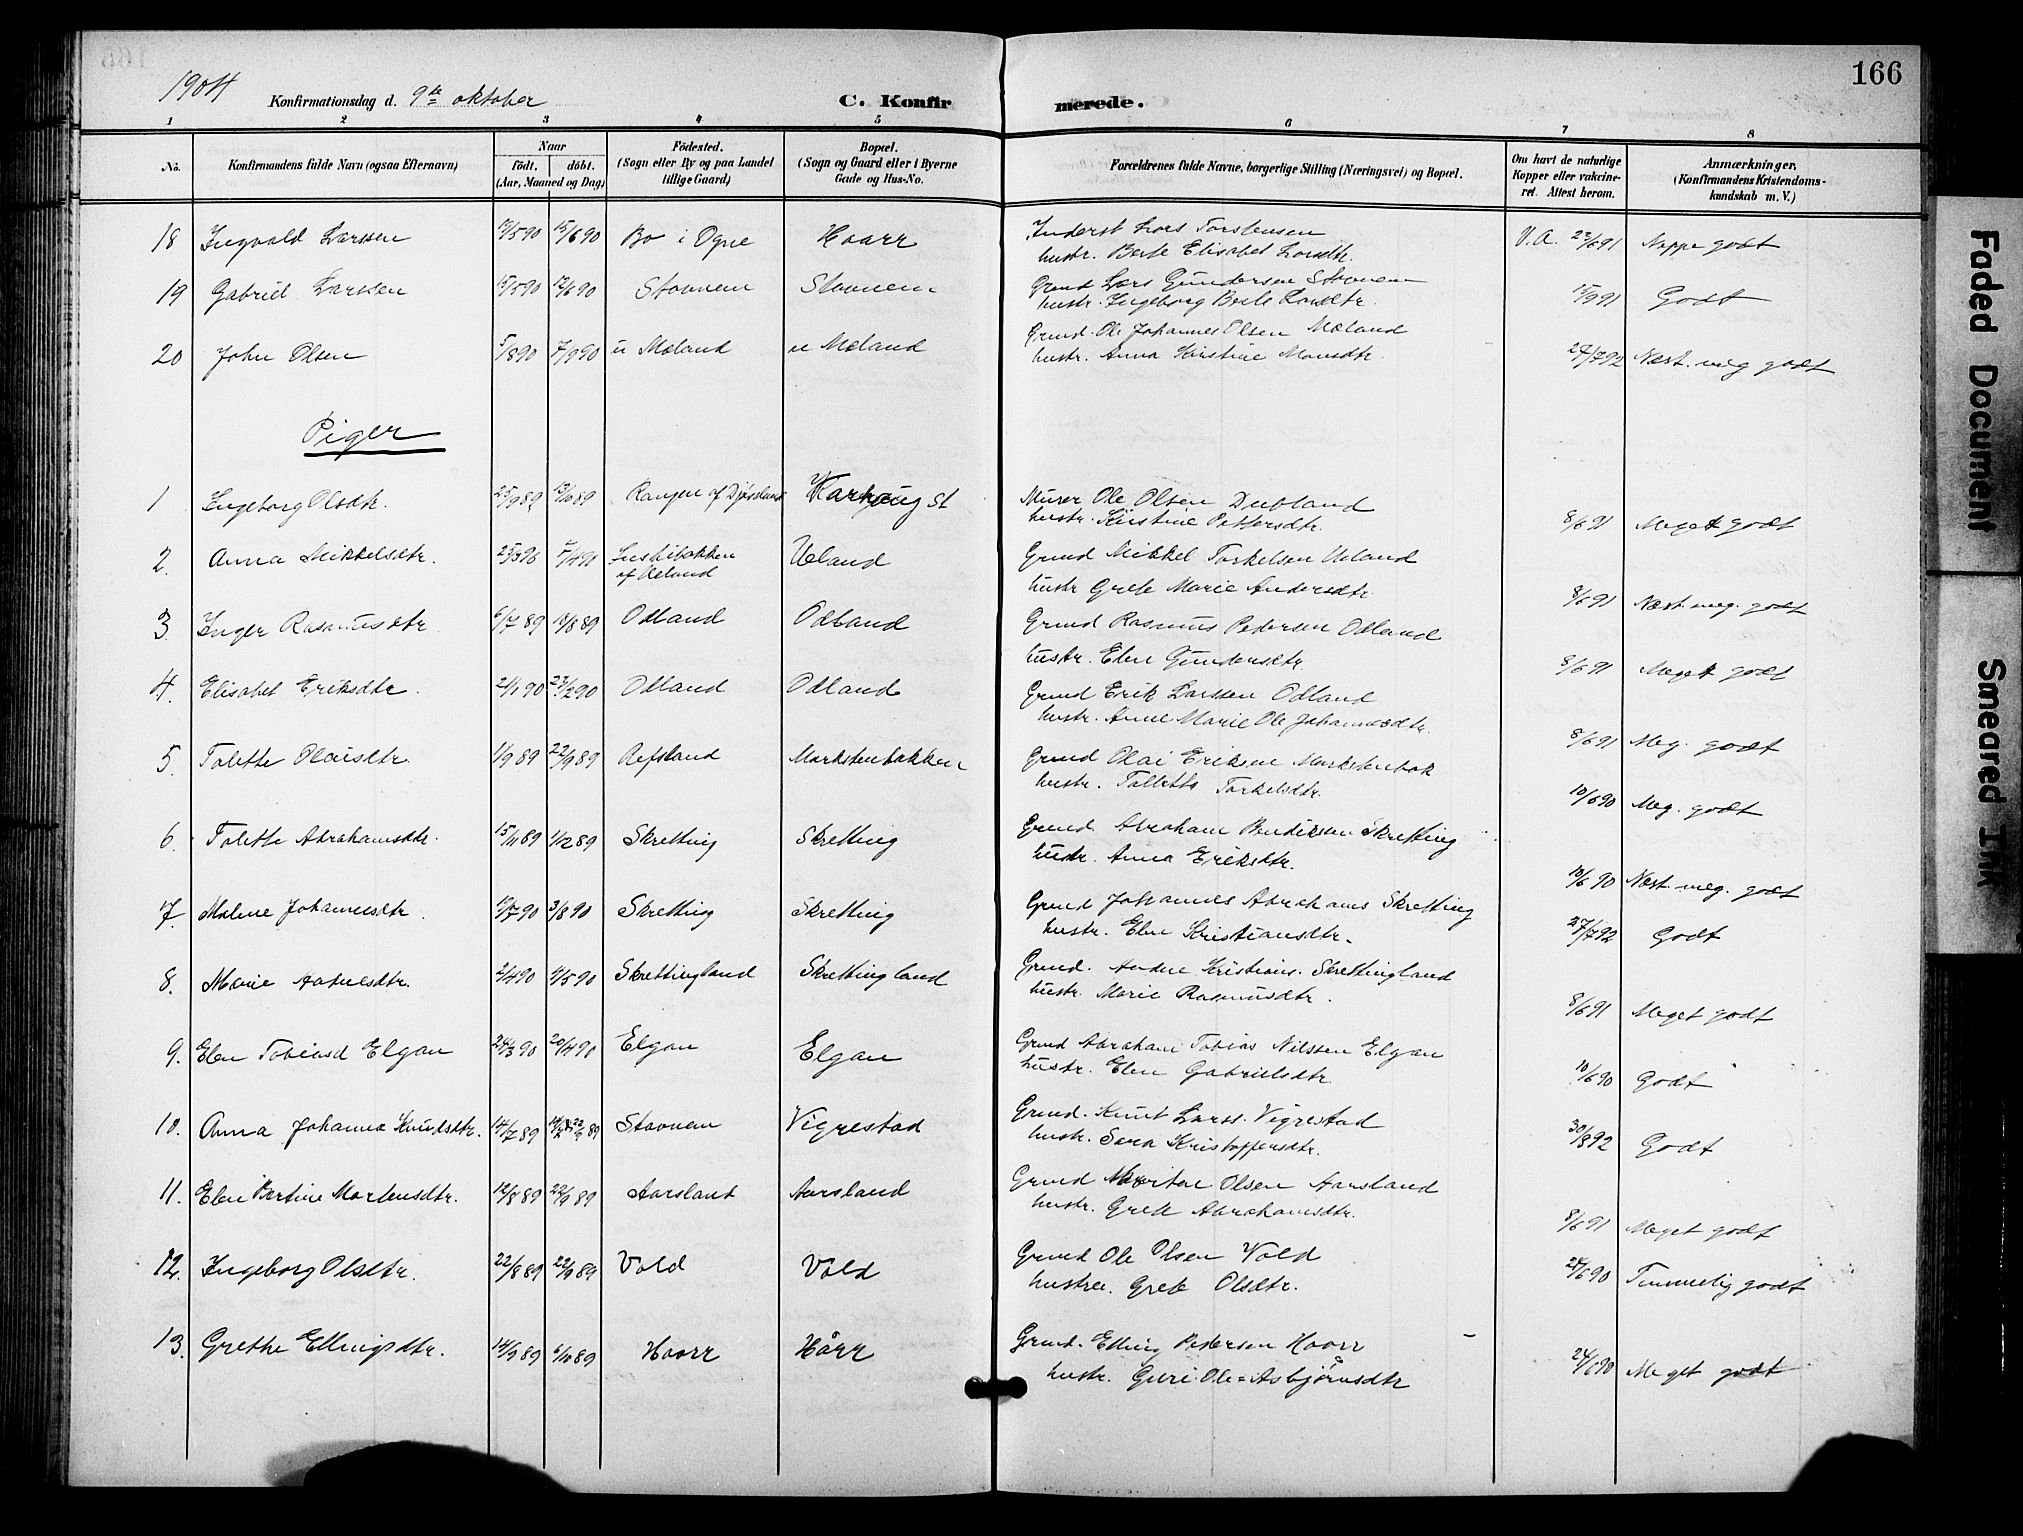 166
1904 Konfirmationsdag d. 9de oktober C. Konfirmerede.
1 2 3 4 5 6 7 8
No. Konfirmandens fulde Navn (ogsaa Efternavn) Naar födt. döbt. (Aar, Maaned og Dag) Födested. (Sogn eller By og paa Landet tillige Gaard) Bopæl. (Sogn og Gaard eller i Byerne Gade og Hus-No. Forældrenes fulde Navne, borgerlige Stilling (Næringsvei) og Bopæl. Om havt de naturlige Kopper eller vakcineret. Attest herom. Anmærkninger, (Konfirmandens Kristendomskundskab m. V.)
18 Ingvald Larssen 15/6 90 Bo i Ogne Haarr Inderst Lars Torstensen V.A. 22/6 91 Neppe godt
hustr. Berte Elisabet Larsdtr.
19 Gabriel Larssen 15/5 90 Stavnem Stavnem Grund Lars Gundersen Stavnem 15/9 91 Godt
hustr. Ingeborg Berte Larsdtr.
20 John Olsen 5/8 90 7/9 90 u Mæland u Mæland Grund. Ole Johannes Olsen Mæland 27/7 92 Næst. meg godt
hustr. Anna Kirstine Monsdtr.
Piger
1 Ingeborg Olsdtr. 25/9 89 13/10 89 Varhoug St Murer Ole Olsen Dubland 8/6 91 Meget godt
hustr. Kirstine Pettersdtr.
2. Anna Mikkelsdtr. 5/4 90 af Ueland Ueland Grund Mikkel Torkelsen Ueland 8/6 91 Næst meg. godt
hustr Grete Marie Andersdtr.
3. Inger Rasmusdtr 6/7 89 18/8 89 Odland Odland Grund Rasmus Pedersen Odland 8/6 91 Meget godt
hustr. Elen Gundersdtr.
4. Elisabet Eriksdtr. 21/1 90 23/2 90 Odland Odland Grund Erik Larssen Odland 8/6 91 Meg. godt
hustr. Anne Marie Ole Johannesdtr.
5. Talette Olaisdtr. 1/9 89 22/9 89 Refsland Markstenbakken Grund Olai Eriksen Markstenbak 10/6 90 Meg. godt
hustr. Talletta Torkelsdtr.
6. Talette Abrahamsdtr. 15/11 89 1/12 89 Skretting Skretting Grund. Abraham Bendiksen Skretting 10/6 90 Næst meg. godt
hustr. Anna Eriksdtr.
7. Malene Johannesdtr. 3/8 90 Skretting Skretting Grund Johannes Abrahams Skretting 27/7 92 Godt
hustr. Elen Kristiansdtr.
8. Marie Andreasdtr. 2/4 90 4/5 90 Skrettingland Skrettingland Grund. Andere Kristians. Skrettingland 8/6 91 Meget godt
hustr. Marie Rasmusdtr.
9. Elen Tobiasd Elgan 24/3 90 20/4 90 Elgan Elgan Grund Abraham Tobias Nilssen Elgan 10/6 90 Godt
hustr. Elen Gabrielsdtr
10. Anna Johanna Knudsdtr. 14/7 89 Stavnem Vigrestad Grund. Knut Larss. Vigrestad 30/8 92 Godt
hustr. Sara Kristoffersdtr.
11. Elen Bertine Mortensdtr. 12/8 89 22/9 89 Aarsland Aarsland Grund Morten Olsen Aarsland 8/6 91 Meget godt
hustr. Grete Abrahamsdtr.
12. Ingeborg Olsdtr. 22/8 89 22/9 89 Vold Vold Grund Ole Olsen Vold 24/6 90 Temmelig godt
hustru. Grete Olsdtr.
13. Grethe Ellingsdtr. 14/9 89 6/10 89 Haarr Hårr Grund. Elling Pedersen Haarr 24/6 90 Meget godt
hustr. Guri Ole=Asbjørnsdtr
Faded Document
Smeared Ink